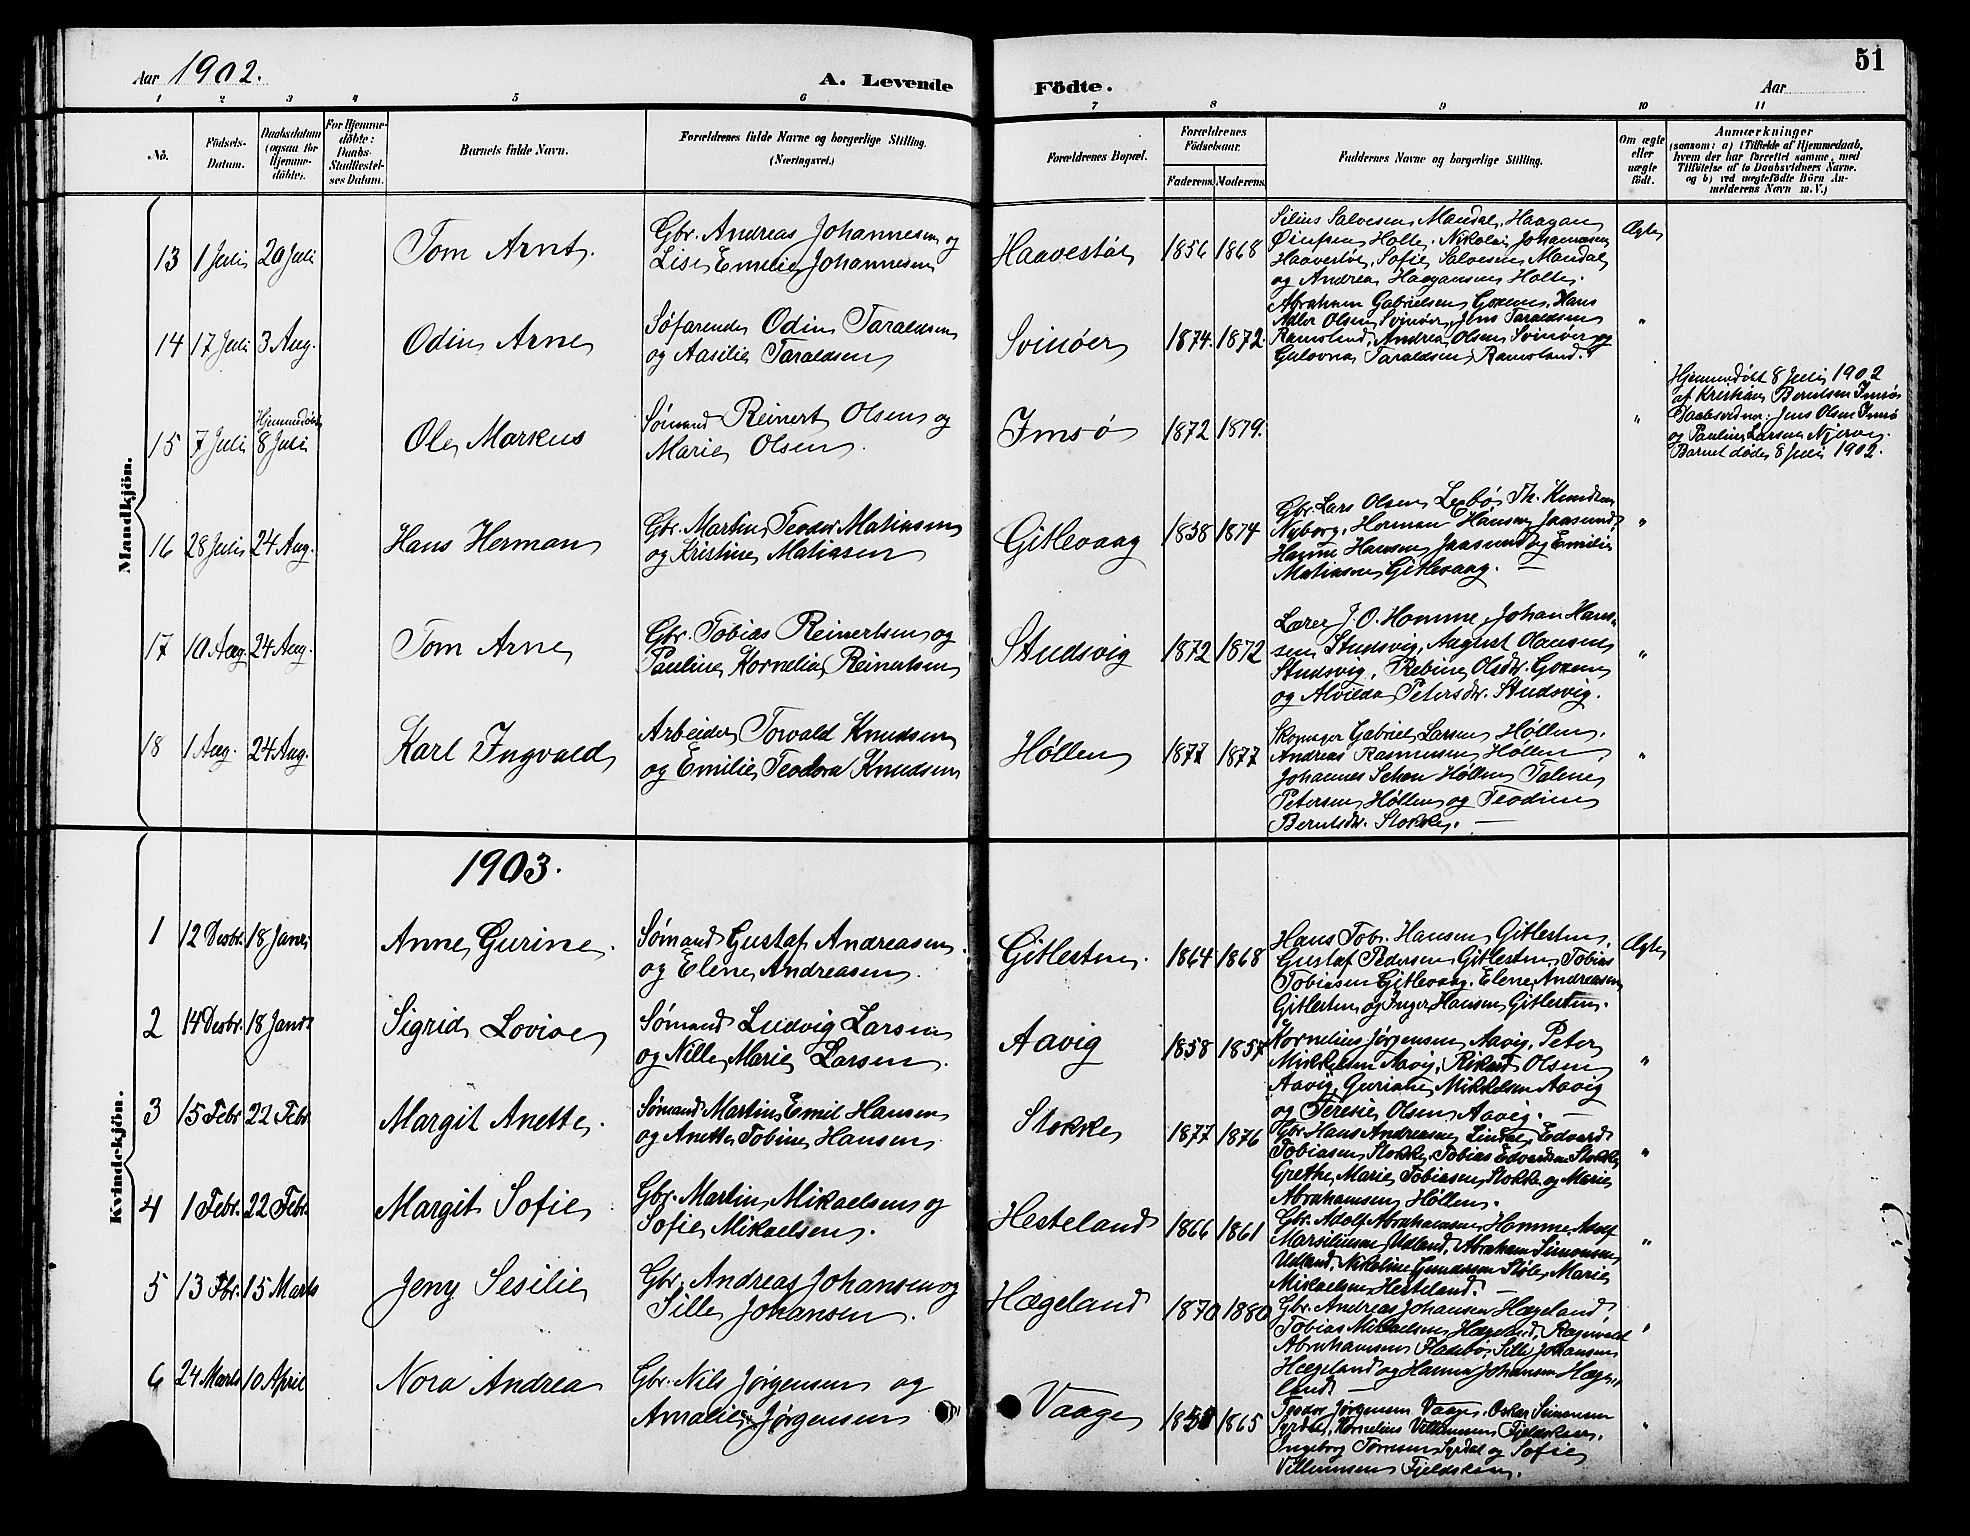 Aar 1902.
A. Levende
Födte.
Aar
51
1 2 3 4 5 6 7 8 9 10 11
No.
Födsels-
Datum.
Daabsdatum
(ogsaa for
Hjemme-
döbte).
For Hjemme-
döbte:
Daabs-
Stadfæstel-
ses Datum.
Barnets fulde Navn.
Forældrenes fulde Navne og borgerlige Stilling.
(Næringsvei.)
Forældrenes Bopæl.
Forældrenes
Födselsaar.
Faderens. Moderens.
Faddernes Navne og borgerlige Stilling.
Om ægte
eller
uægte
födt.
Anmærkninger
(saasom: a) i Tilfælde af Hjemmedaab,
hvem der har forrettet samme, med
Tilföielse af to Daabsvidners Navne.
og b) ved uægtefödte Börn An-
melderens Navn m. V.)
Mandkjön.
13 1 Juli 20 Juli Tom Arnt.
Gbr. Andreas Johannesen og
Lise Emilie Johannesen
Haavestøl 1856 1868
Silius Salvesen Mandal, Haagan
Øinfsen Holte, Nikolai Johannesen
Haavestøl, Sofie Salvesen Mandal
og Andrea Haagansen Holte.
Ægte
14 17 Juli 3 Aug. Odin Arne
Søfarende Odin Taraldsen
og Aasilie Taraldsen
Svinøer 1874. 1872.
Abraham Gabrielsen Goxem, Hans
Adler Olsen Svinøer, Jens Taraldsen
Ramsland, Andrea Olsen Svinøer og
Gulovna Taraldsen Ramsland.
"
15 7 Juli Hjemmedøbt
8 Juli Ole Markus
Sømand Reinert Olsen og
Marie Olsen.
Imsø 1872 1879.
"
Hjemmedøbt 8 Juli 1902
af Kristian Berntsen Imsø
Daabsvidner: Jens Olsen Imsø
og Pauline Larsen Njerve.
Barnet døde 8 Juli 1902.
16 28 Juli 24 Aug. Hans Herman
Gbr. Martin Teodor Matiasen
og Kristine Matiasen
Gitlevaag 1838 1874
Gbr. Lars Olsen Lebø, Th. Knudsen
Nyborg, Herman Hansen Jaasund,
Hanne Hansen Jaasund og Emilie
Matiasen Gitlevaag. —
"
17 10 Aug. 24 Aug. Tom Arne
Gbr. Tobias Reinertsen og
Pauline Kornelia Reinertsen
Studsvig 1872 1872
Lærer J. O. Homme, Johan Han-
sen Studsvig, August Olausen
Studsvig, Rebine Olsdtr. Goxem
og Alvilda Petersdtr. Studsvig.
"
18 1 Aug. 24 Aug. Karl Ingvald
Arbeider Torvald Knudsen
og Emilie Teodora Knudsen
Høllen 1877 1877
Skomager Gabriel Larsen Høllen,
Andreas Rasmussen Høllen,
Johannes Schøn Høllen, Talene
Petersen Høllen og Teodine
Berntsdtr. Stokke. —
"
1903.
Kvindekjön.
1 12 Desbr. 18 Janr. Anne Gurine.
Sømand Gustaf Andreasen.
og Elene Andreasen.
Gitlesten. 1864 1868
Hans Tob. Hansen Gitlesten,
Gustaf Pedersen Gitlesten, Tobias
Tobiasen Gitlevaag, Elene Andreasen
Gitlesten og Inger Hansen Gitlesten.
Ægte
2 14 Desbr. 18 Janr. Sigrid Lovise
Sømand Ludvig Larsen
og Nille Marie Larsen.
Aavig 1858 1857
Kornelius Jørgensen Aavig, Peter
Mikkelsen Aavig, Rikard Olsen
Aavig, Guriane Mikkelsen Aavig
og Teresie Olsen Aavig. —
"
3 15 Febr. 22 Febr. Margit Anette.
Sømand Martin Emil Hansen
og Anette Tobine Hansen
Stokke 1877 1876
Gbr. Hans Andreasen Lindal, Edvard
Tobiasen Stokke, Tobias Edvardsen Stokke,
Grethe Marie Tobiasen Stokke og Marie
Abrahamsen Høllen.
"
4 1 Febr. 22 Febr. Margit Sofie
Gbr. Martin Mikaelsen og
Sofie Mikaelsen.
Hesteland 1866 1861
Gbr. Adolf Abrahamsen Homme, Adolf
Marsiliusen Udland, Abraham Simonsen
Udland, Nikoline Gundersen Støle, Marie
Mikaelsen Hesteland. —
"
5 13 Fbr. 15 Marts Jeny Sesilie
Gbr. Andreas Johansen og
Sille Johansen.
Hægeland 1870 1880
Gbr. Andreas Johansen Hægeland,
Tobias Mikaelsen Hægeland, Ragnvald
Abrahamsen Fladebø, Sille Johansen
Hægeland og Hanna Johansen Hæge-
land. —
"
6 24 Marts 10 April Nora Andrea
Gbr. Nils Jørgensen og
Amalie Jørgensen
Vaage 1865
Teodor Jørgensen Vaage, Oskar Simonsen
Syrdal, Kornelius Villumsen Fjeldskaar,
Ingeborg Tørresen Syrdal og Sofie
Villumsen Fjeldskaar.
"